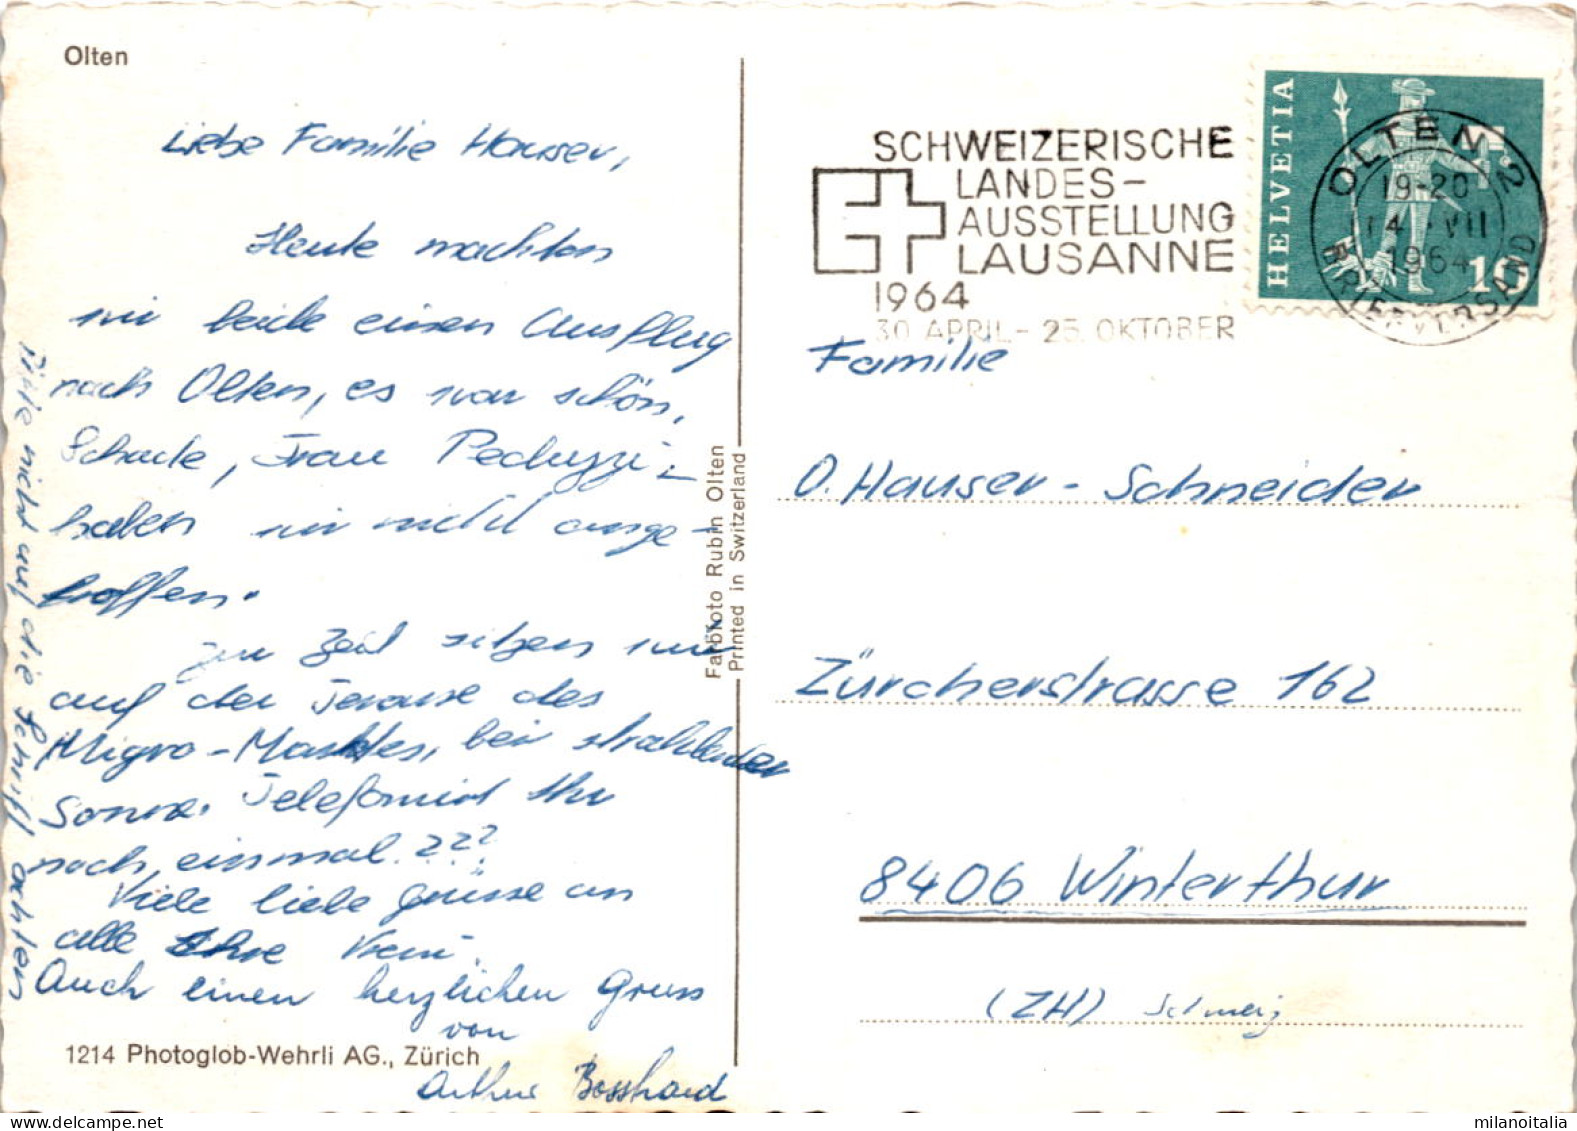 Olten
Liebe Familie Hauser,
Heute machten
wir beide einen Ausflug
nach Olten, es war schön.
Schade, Frau Peduzzi -
haben wir nicht ange-
troffen.
Zur Zeit sitzen wir
auf der Terasse des
Migro-Marktes, bei strahlender
Sonne. Telefoniert Ihr
noch einmal.???
Viele liebe Grüsse an
alle Ihre Vreni.
Auch einen herzlichen Gruss
von
Arthur Bosshard
Bitte nicht auf die Schrift achten
1214 Photoglob-Wehrli AG., Zürich
Farbfoto Rubin Olten
Printed in Switzerland
SCHWEIZERISCHE
LANDES-
AUSSTELLUNG
LAUSANNE
1964
30 APRIL - 25. OKTOBER
HELVETIA
10
OLTEN 2
19-20
14 VII
1964
BRIEFVERSAND
Familie
O. Hauser - Schneider
Zürcherstrasse 162
8406 Winterthur
(ZH) Schweiz
milanoitalia